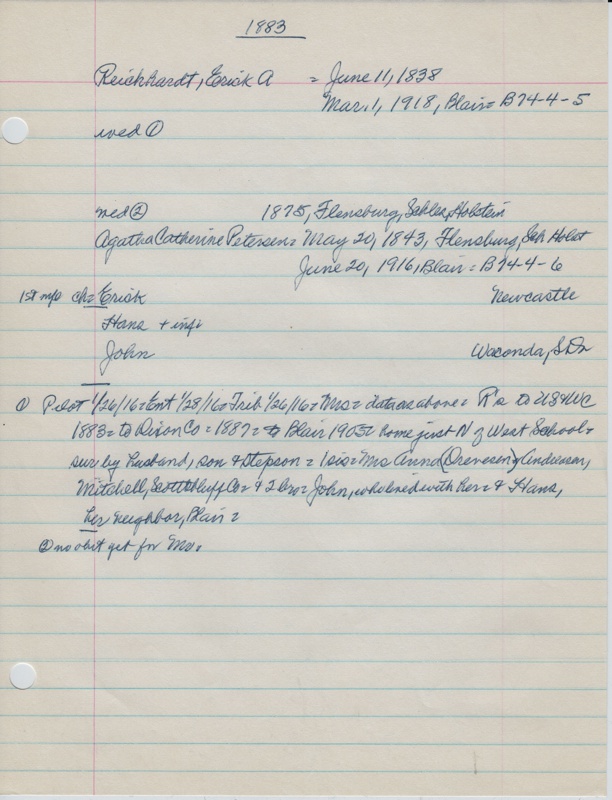 1883
Reickhardt, Erick A = June 11, 1838
Mar. 1, 1918, Blair = B74-4-5
wed ①
wed ② 1875, Flensburg, Schles, Holstein
Agatha Catherine Petersen = May 20, 1843, Flensburg, Sch Holst
June 20, 1916, Blair = B74-4-6
1st mg ch = Erick Newcastle
Hans + inf
John Waconda, S Dk
① Pilot 1/26/16 = Ent 1/28/16 = Trib 1/26/16 = Mrs = data as above = R's to US & WC
1883 = to Dixon Co = 1887 = to Blair 1905 = home just N of West School =
sur by husband, son & stepson = 1 sis = Mrs Anna Andersen,
Mitchell, Scottsbluff Co = & 2 bro = John, who lived with her = & Hans,
her neighbor, Blair =
② no obit yet for Mr.